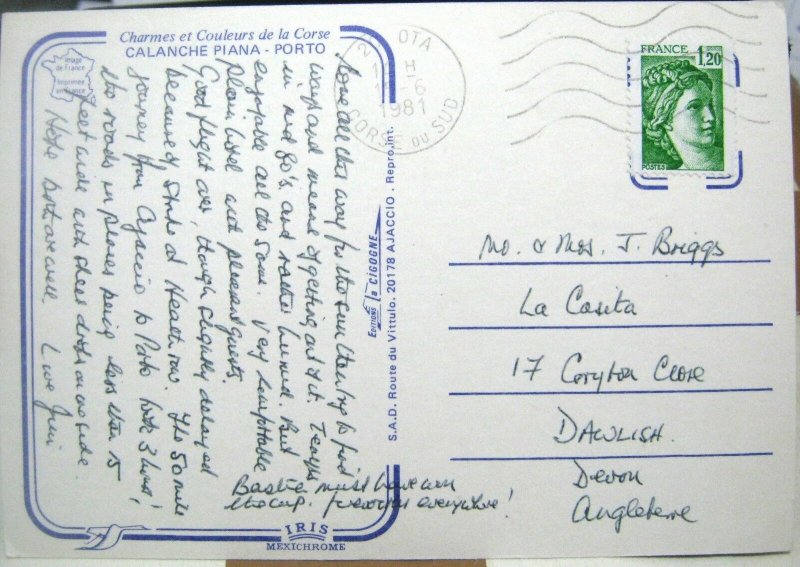 Charmes et Couleurs de la Corse
CALANCHE PIANA - PORTO
Image
de France
Imprimée
en France
Come all this way for the sun then try to find
ways and means of getting out of it. Temps
in mid 80's and rather humid. But
enjoyable all the same. Very comfortable
hotel and pleasant guests.
Good flight over, though slightly delayed
because of strike at Heathrow. The 50 mile
journey from Ajaccio to Porto took 3 hours,
the roads in places being less than 15
feet wide and sheer drops on one side.
Hope both are well Love Jim
Bastia must have won
the cup. favourites everywhere!
IRIS
MEXICHROME
EDITIONS la CIGOGNE
S.A.D. Route du Vittulo. 20178 AJACCIO. Repro.int.
OTA
H
-6
1981
CORSE DU SUD
FRANCE 1,20
POSTES
Mr. & Mrs. J. Briggs
La Casita
17 Coryton Close
DAWLISH.
Devon
Angleterre